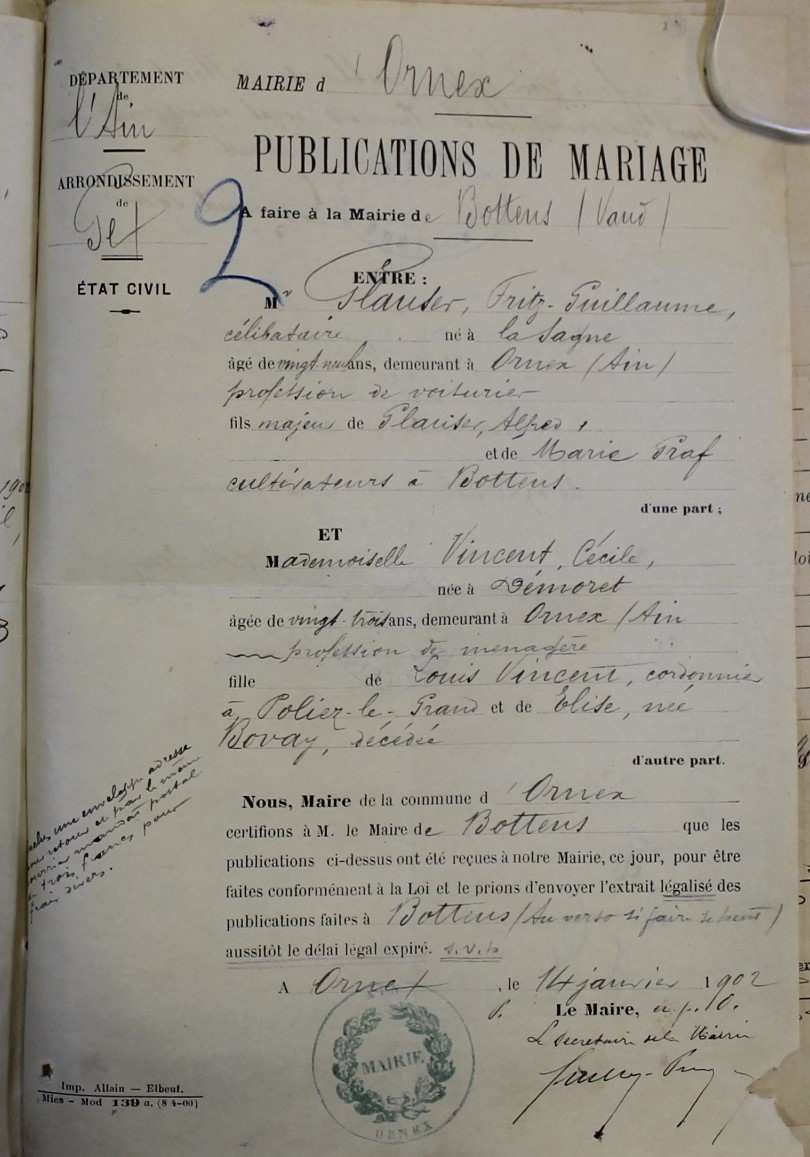 DÉPARTEMENT
de
l'Ain
ARRONDISSEMENT
de
Gex
ÉTAT CIVIL
MAIRIE d'Ornex
PUBLICATIONS DE MARIAGE
2
A faire à la Mairie de Bottens (Vaud)
ENTRE :
Mr Glauser, Fritz-Guillaume,
célibataire né à la Sagne
âgé de vingt neuf ans, demeurant à Ornex (Ain)
profession de voiturier
fils majeur de Glauser, Alfred,
et de Marie Graf
cultérateurs à Bottens.
d'une part ;
ET
Mademoiselle Vincent, Cécile,
née à Démoret
âgée de vingt-trois ans, demeurant à Ornex (Ain
profession de menagère
fille de Louis Vincent, cordonnier
à Poliez-le-Grand et de Elise, née
Bovay, décédée
d'autre part.
Nous, Maire de la commune d'Ornex
certifions à M. le Maire de Bottens que les
publications ci-dessus ont été reçues à notre Mairie, ce jour, pour être
faites conformément à la Loi et le prions d'envoyer l'extrait légalisé des
publications faites à Bottens (Au verso si faire se peut)
aussitôt le délai légal expiré. s.v.p.
A Ornex, le 14 janvier 1902
Le Maire, p.
Le secrétaire de la Mairie
une enveloppe adresse
retour et par le même
mandat postal
trois francs pour
frais divers.
MAIRIE
ORNEX
Imp. Allain — Elbeuf.
Mies - Mod 139 a. (8 4-00)